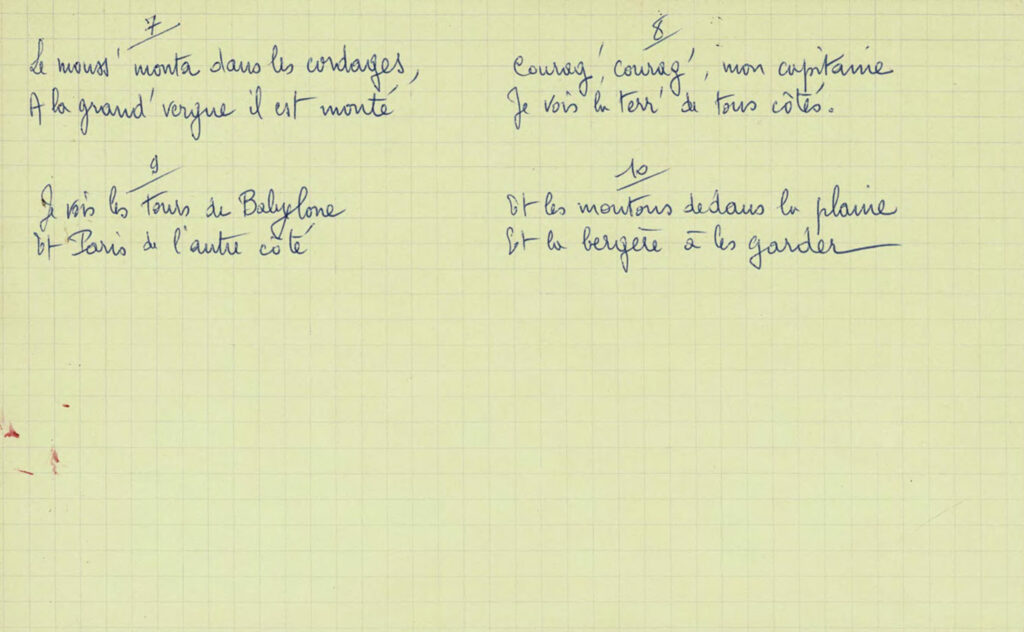 7
Le mouss' monta dans les cordages,
A la grand' vergue il est monté
8
Courag', courag', mon capitaine
Je vois la terr' de tous côtés.
9
Je vois les tours de Babylone
Et Paris de l'autre côté
10
Et les moutons dedans la plaine
Et la bergère à les garder